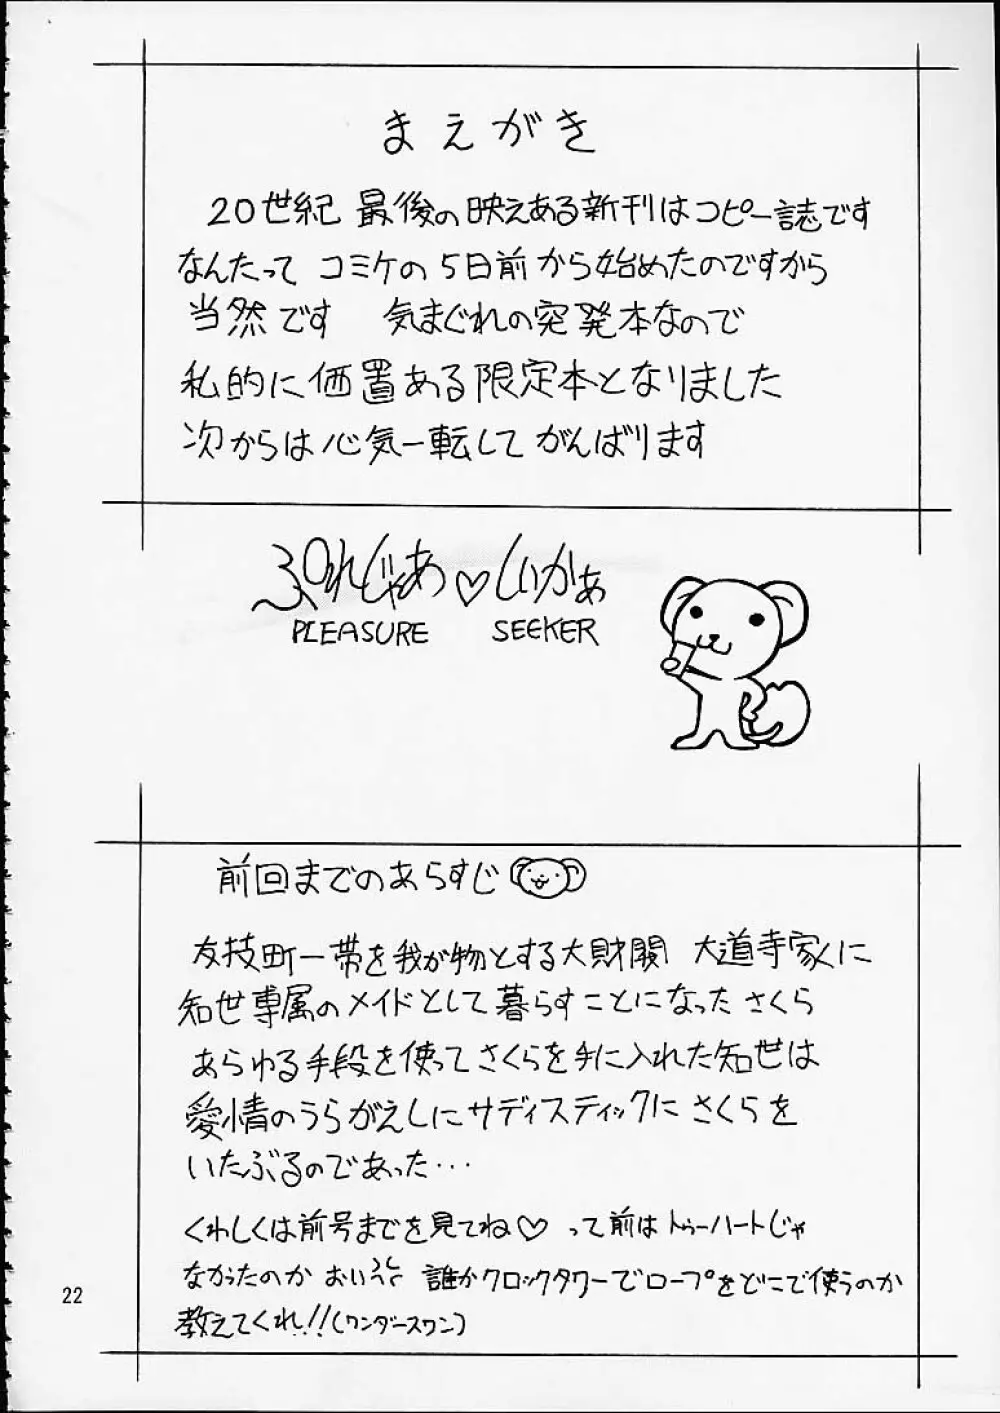 まえがき
20世紀 最後の映えある新刊はコピー誌です
なんたって コミケの5日前から始めたのですから
当然です 気まぐれの突発本なので
私的に価置ある限定本となりました
次からは心気一転して がんばります
ぷれじゃあ♡しいかぁ
PLEASURE SEEKER
前回までのあらすじ
友技町一帯を我が物とする大財閥 大道寺家に
知世専属のメイドとして暮らすことになったさくら
あらゆる手段を使ってさくらを手に入れた知世は
愛情のうらがえしにサディスティックにさくらを
いたぶるのであった…
くわしくは前号までを見てね♡ って前はトゥーハートじゃ
なかったのか おい 誰かクロックタワーでロープをどこで使うのか
教えてくれ!!(ワンダースワン)
22